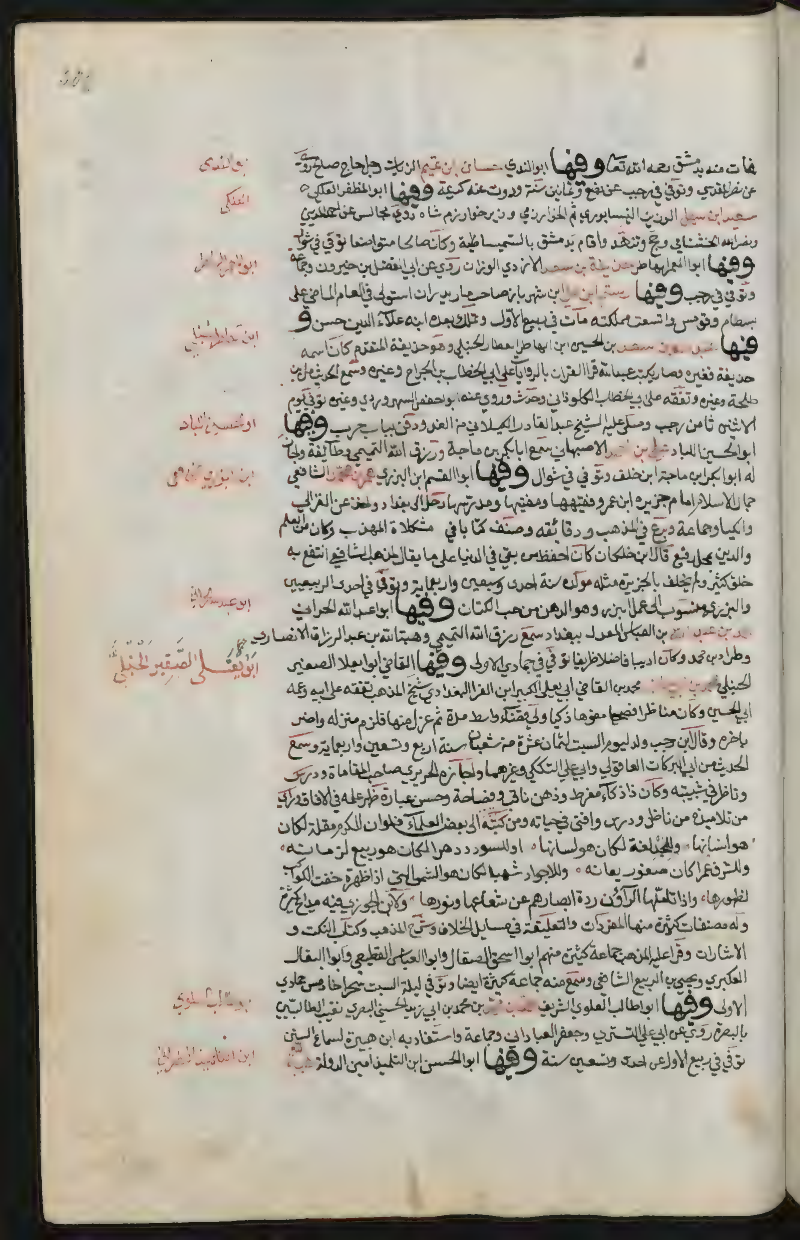 فمات منه بدمشق رحمه الله تعالى وفيها ابو الندي حسان ابن تميم الزيات رجل حاج صالح روي
عن نصر المقدسي وتوفي في رجب عن بضع وثمانين سنة وروت عنه كريمة وفيها ابو المظفر الفلكي
سعيد ابن سهل الوزير النيسابوري ثم الخوارزمي وزير خوارزم شاه روي مجالس عن
ونصر الله الخشنامي وحج وتزهد واقام بدمشق بالسميساطية وكان صالحا متواضعا توفي في شوال
وفيها ابو المعمر الازدي الوزان روي عن ابي الفضل بن خيرون وجماعة
وتوفي في رجب وفيها رستم ابن علي ابن شهريار صاحب مازندران استولي في العام الماضي على
بسطام وقومس واتسعت مملكته مات في ربيع الاول وتملك بعده ابنه علاء الدين حسن و
فيها بن الحسين ابن ابي طاهر العطار الحنبلي وهو حذيفة المتقدم كان اسمه
حذيفة فغيره وصار يكتب عبد الله قرا القران بالروايات على ابي الخطاب بن الجراح وغيره وسمع الحديث من ابن
طلحة وغيره وتفقه على ابي الخطاب الكلوذاني وحدث وروي عنه ابو حفص السهروردي وغيره توفي يوم
الاثنين ثامن رجب وصلى عليه الشيخ عبد القادر الكيلاني من الغد ودفن بباب حرب وفيها
ابو الحسين اللباد علي بن احمد الاصبهاني سمع ابا بكر بن ماجة ورزق الله التميمي وطائفة واجاز
له ابو بكر ابن خلف وتوفي في شوال وفيها ابو القسم ابن البزري عمر بن محمد الشافعي
جمال الاسلام امام جزيرة ابن عمر وفقيهها ومفتيها ومدرسها رحل الى بغداد واخذ عن الغزالي
والكيا وجماعة وبرع في المذهب ودقائقه وصنف كتابا في مشكلات المهذب وكان من العلم
والدين بمحل رفيع قال ابن خلكان كان احفظ من بقي في الدنيا على ما يقال لمذهب الشافعي انتفع به
خلق كثير ولم يخلف بالجزيرة مثله مولده سنة احدى وسبعين واربعماية وتوفي في احدى الربيعين
والبزري منسوب الى عمل البزر وهو الدهن من حب الكتان وفيها ابو عبد الله الحراني
بن العباس المعدل ببغداد سمع رزق الله التميمي وهبة الله بن عبد الرزاق الانصاري
وطراد بن محمد وكان اديبا فاضلا ظريفا توفي في جمادي الاولى وفيها القاضي ابو يعلا الصغير
الحنبلي محمد بن القاضي ابي يعلى الكبير ابن الفرا البغدادي شيخ المذهب تفقه على ابيه وعمه
ابي الحسين وكان مناظرا فصيحا مفوها ذكيا ولي قضاء واسط مدة ثم عزل منها فلزم منزله واضر
باخره وقال ابن رجب ولد ليوم السبت لثمان عشرة من شعبان سنة اربع وتسعين واربعماية وسمع
الحديث من ابي البركات العاقولي وابي علي التككي وغيرهما واجازه الحريري صاحب المقامات ودرس
وناظر في شبيبته وكان ذا ذكاء مفرط وذهن ثاقب وفصاحة وحسن عبارة ظهر علمه في الافاق وراي
من تلاميذه من ناظر ودرس وافتى في حياته ومن كتبه الى بعض العلماء فلو ان للكرم مقلة لكان
هو انسانها وللمجد لغة لكان هو لسانها او للسؤدد دهرا لكان هو ربيع لزمانه
وللشرف عمرا كان صفو ريعانه وللاجواد شهبا لكان هو الشمس التي اذا ظهرت خفت الكواكب
لظهورها واذا تاملتها الراؤن رده ابصارهم عن شعاعها ونورها ولابن الجوزي فيه مدايح كثيرة
وله مصنفات كثيرة منها المفردات والتعليقة في مسايل الخلاف وشرح المذهب وكتاب النكت و
الاشارات وقرا عليه المذهب جماعة كثيرة منهم ابو اسحق الصقال وابو العباس القطيعي وابو البقا
العكبري ويحيى بن الربيع الشافعي وسمع منه جماعة كثيرة ايضا وتوفي في ليلة السبت سحرا خامس جمادي
الاولى وفيها ابو طالب العلوي الشريف بن محمد بن ابي زيد الحسني البصري نقيب الطالبيين
بالبصرة روي عن ابي علي التستري وجعفر العباداني وجماعة واستقدمه ابن هبيرة لسماع السنن
توفي في ربيع الاول عن احدى وتسعين سنة وفيها ابو الحسن ابن التلميذ امين الدولة هبة
ابو الندى
الفلكي
ابو الحسين اللباد
ابو عبد الله الحراني
ابو يعلى الصغير الحنبلي
ابو طالب العلوي
ابن التلميذ النصراني